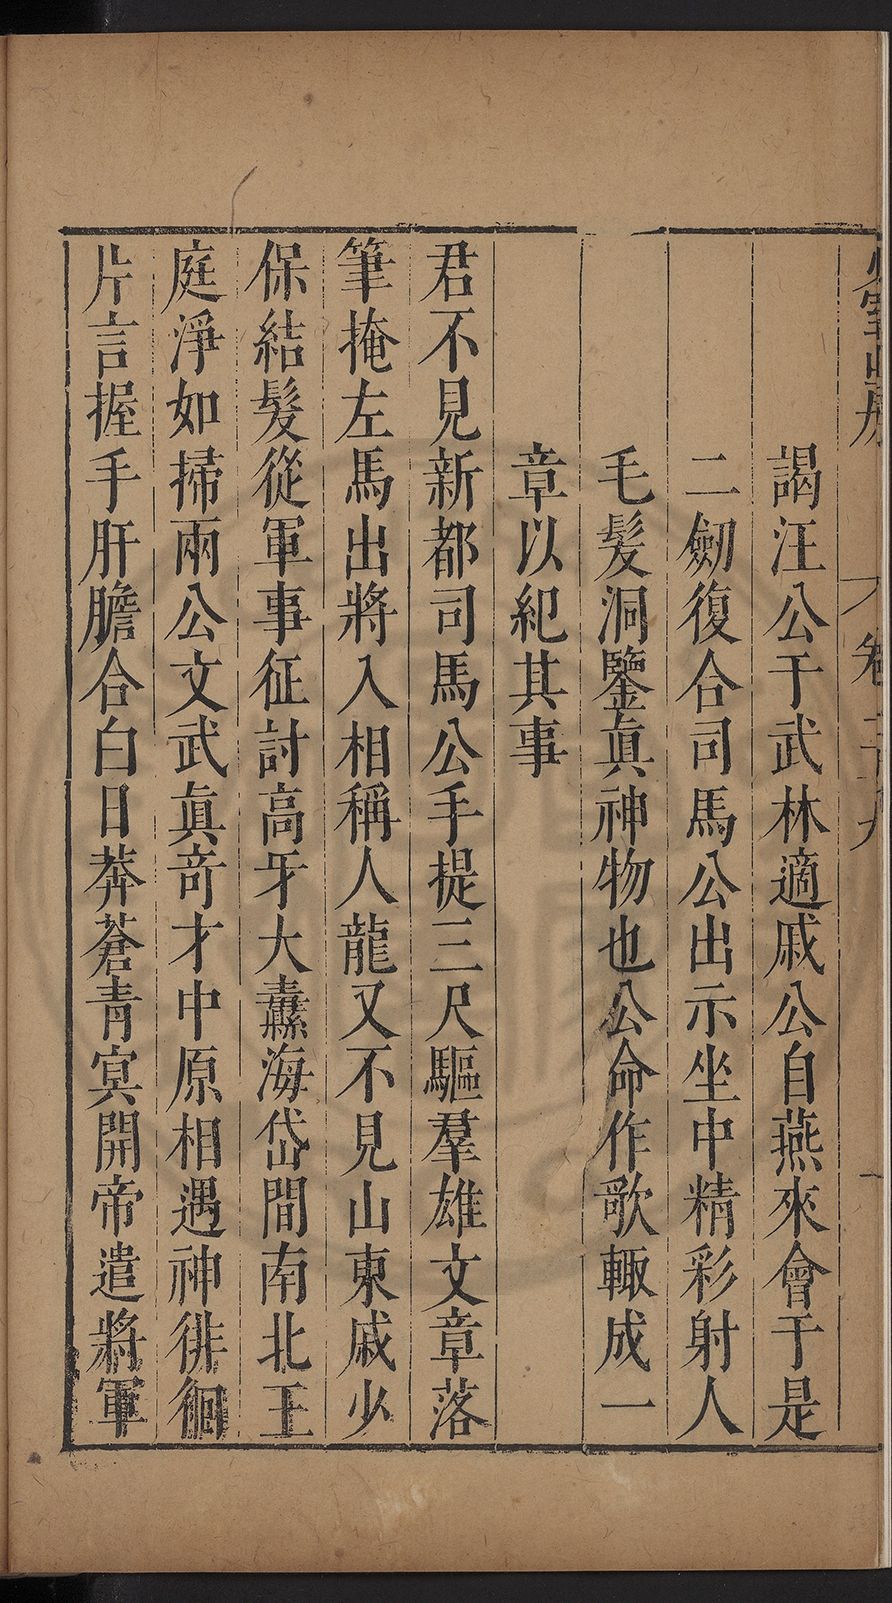 謁汪公于武林適戚公自燕來會于是
二劒復合司馬公出示坐中精彩射人
毛髮洞鑒眞神物也公命作歌輙成一
章以紀其事
君不見新都司馬公手提三尺驅羣雄文章落
筆掩左馬出將入相稱人龍又不見山東戚少
保結髮從軍事征討高牙大纛海岱間南北王
庭淨如掃兩公文武眞竒才中原相遇神徘徊
片言握手肝膽合白日莽蒼青冥開帝遣將軍